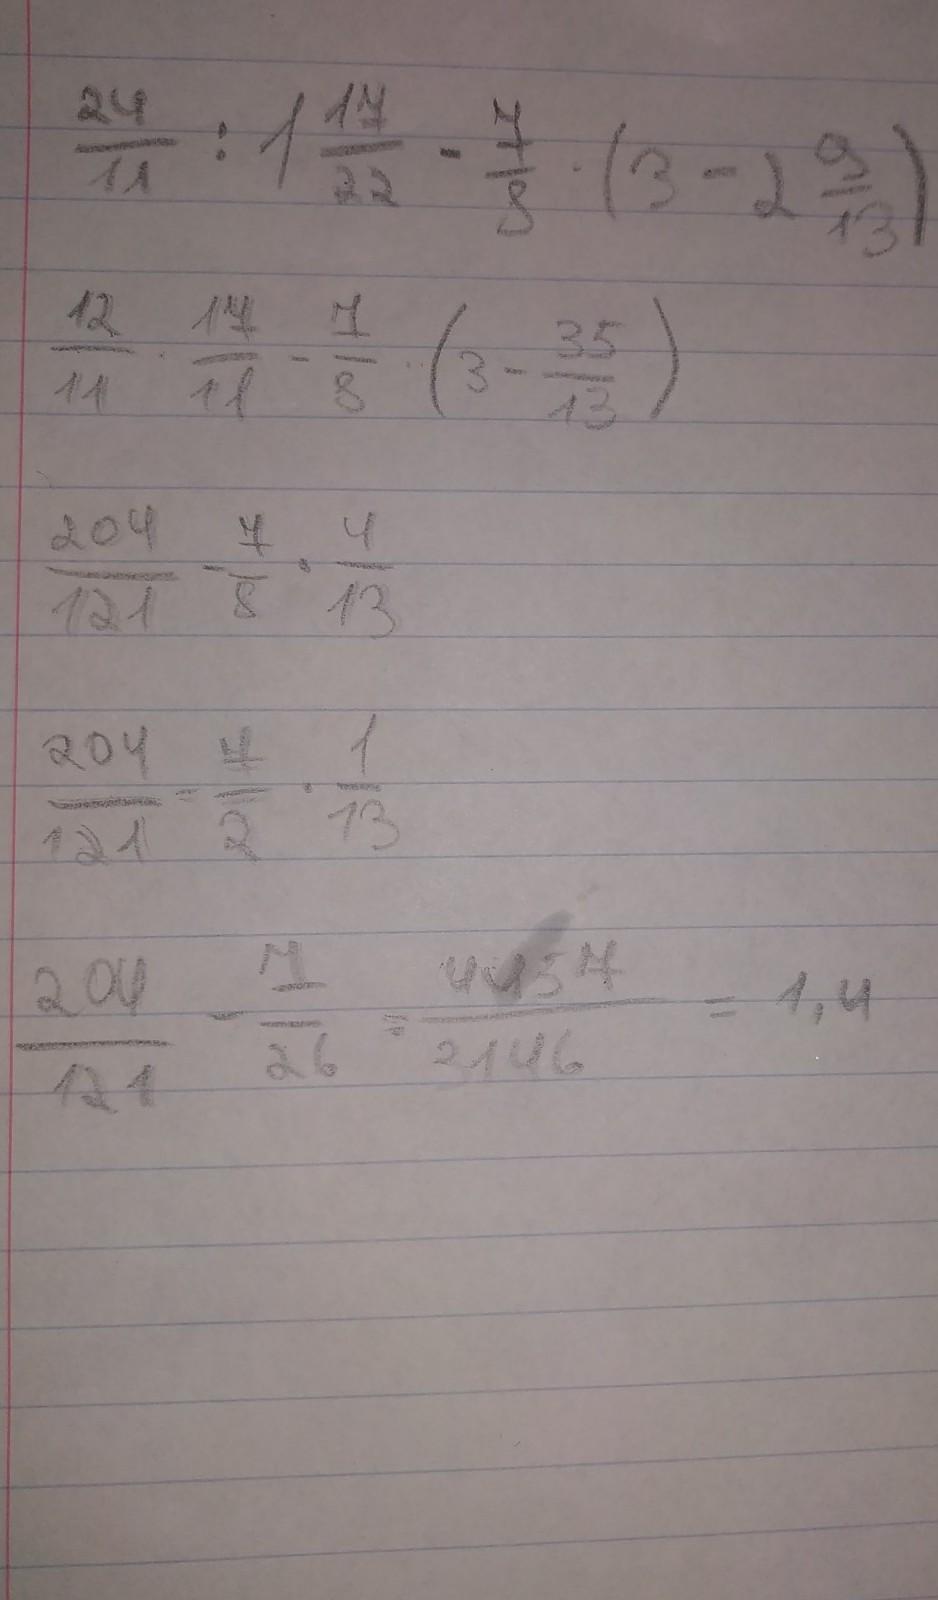 24/11 : 1 17/22 - 7/8 · (3 - 2 9/13)
12/11 · 17/11 - 7/8 · (3 - 35/13)
204/121 - 7/8 · 4/13
204/121 - 7/2 · 1/13
204/121 - 7/26 = 4457/3146 = 1,4